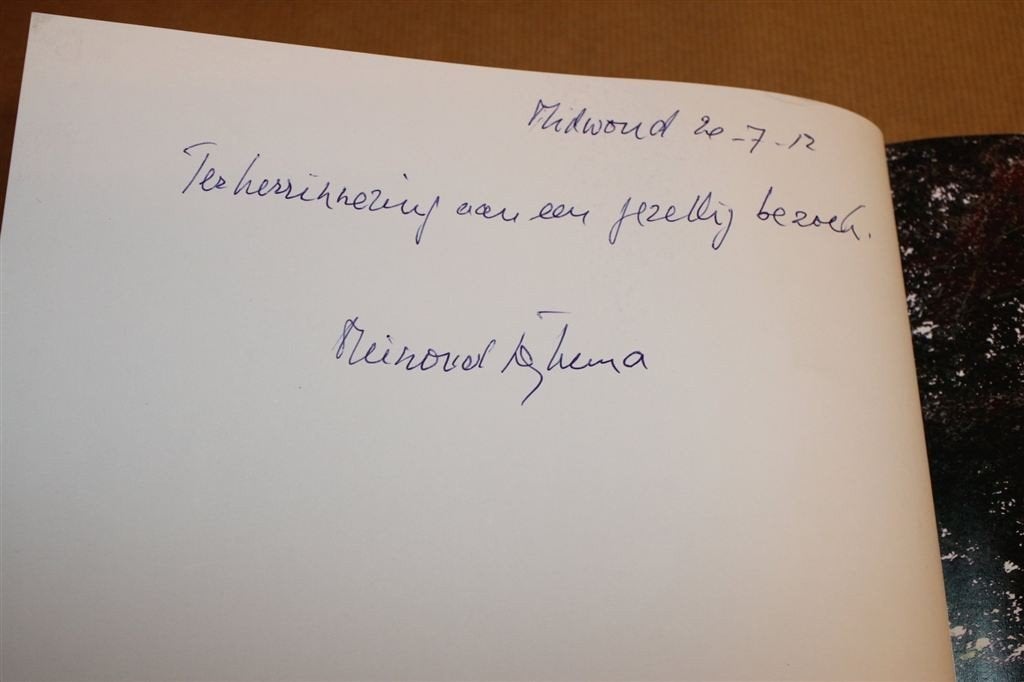 Midwoud 20-7-12
Ter herrinnering aan een gezellig bezoek.
Meinoud